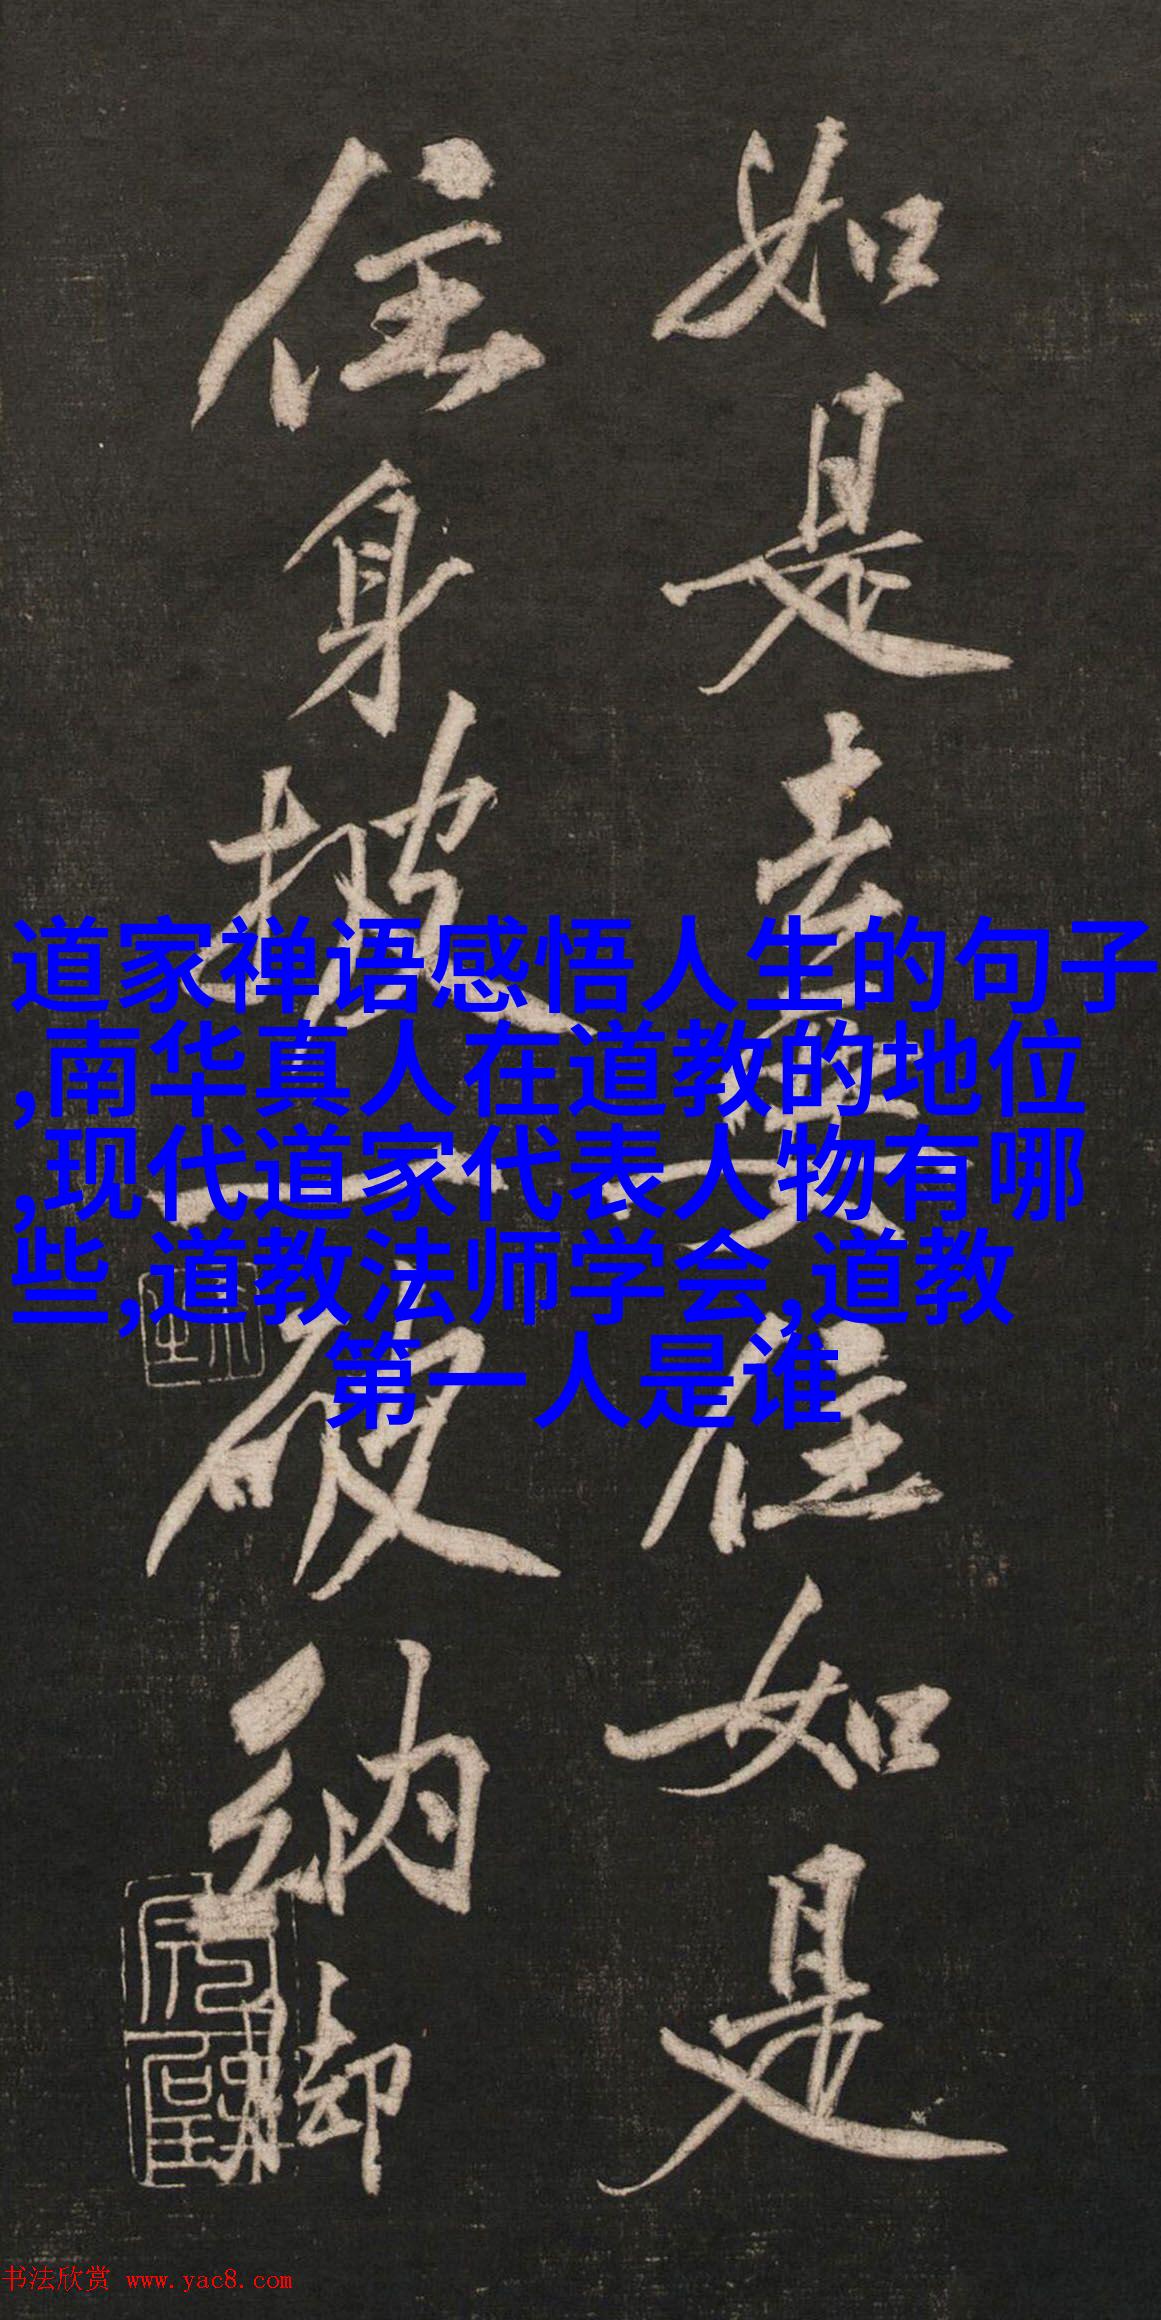 如是去住如是
住身披一破衲脚
道家禅语感悟人生的句子
,南华真人在道教的地位
,现代道家代表人物有哪
些,道教法师学会,道教
第一人是谁
书法欣赏 www.yac8.com